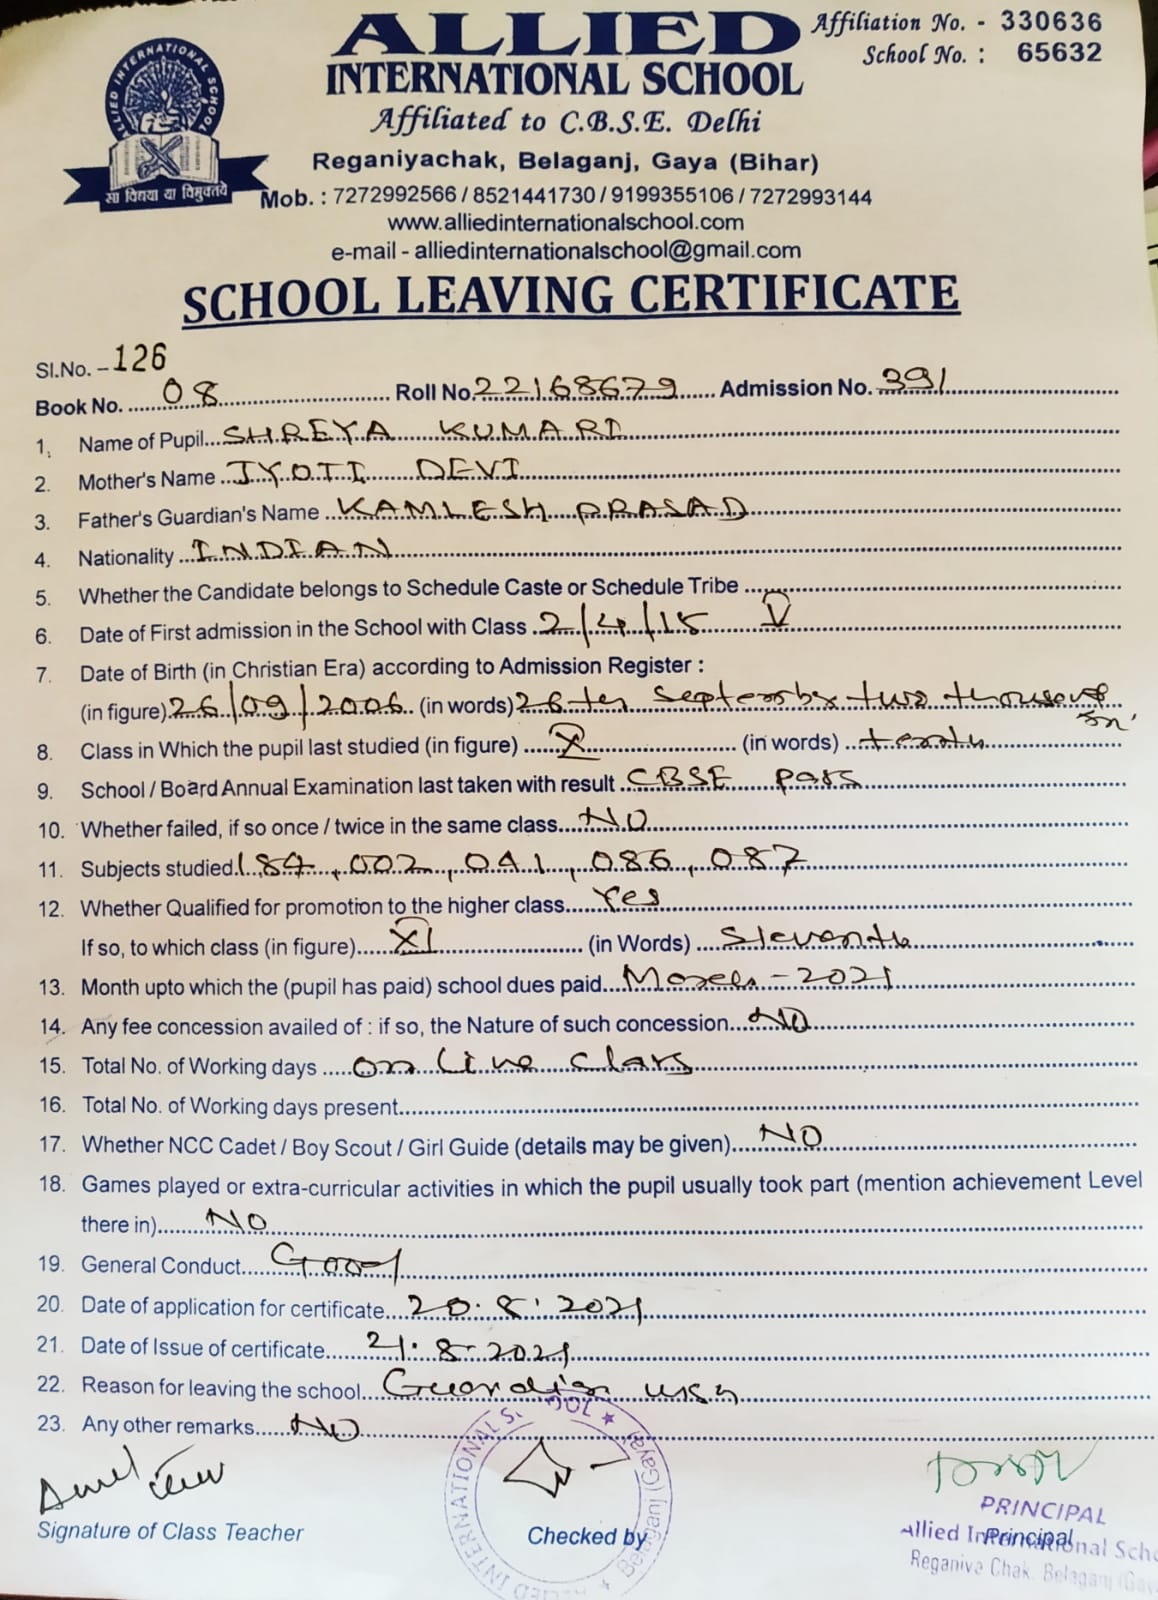 ALLIED INTERNATIONAL SCHOOL
सा विद्या या विमुक्तये
ALLIED
Affiliation No. - 330636
INTERNATIONAL SCHOOL
School No. : 65632
Affiliated to C.B.S.E. Delhi
Reganiyachak, Belaganj, Gaya (Bihar)
Mob. : 7272992566 / 8521441730 / 9199355106 / 7272993144
www.alliedinternationalschool.com
e-mail - alliedinternationalschool@gmail.com
SCHOOL LEAVING CERTIFICATE
Sl.No. - 126
Book No. 08 Roll No. 22168679 Admission No. 391
1. Name of Pupil SHREYA KUMARI
2. Mother's Name JYOTI DEVI
3. Father's Guardian's Name KAMLESH PRASAD
4. Nationality INDIAN
5. Whether the Candidate belongs to Schedule Caste or Schedule Tribe
6. Date of First admission in the School with Class 2/4/15 V
7. Date of Birth (in Christian Era) according to Admission Register :
(in figure) 26/09/2006 (in words) 26th September two thousand
8. Class in Which the pupil last studied (in figure) X (in words) tenth
9. School / Board Annual Examination last taken with result CBSE pass
10. Whether failed, if so once / twice in the same class NO
11. Subjects studied 184, 002, 041, 086, 087
12. Whether Qualified for promotion to the higher class Yes
If so, to which class (in figure) XI (in Words) Eleventh
13. Month upto which the (pupil has paid) school dues paid March - 2021
14. Any fee concession availed of : if so, the Nature of such concession NO
15. Total No. of Working days on line class
16. Total No. of Working days present
17. Whether NCC Cadet / Boy Scout / Girl Guide (details may be given) NO
18. Games played or extra-curricular activities in which the pupil usually took part (mention achievement Level
there in) NO
19. General Conduct Good
20. Date of application for certificate 20.8.2021
21. Date of Issue of certificate 21.8.2021
22. Reason for leaving the school Guardian wish
23. Any other remarks NO
Signature of Class Teacher
Checked by
Principal
PRINCIPAL
Allied International Scho
Reganiya Chak, Belaganj (Gay
ALLIED INTERNATIONAL SCHOOL ★ Belaganj (Gaya) ★